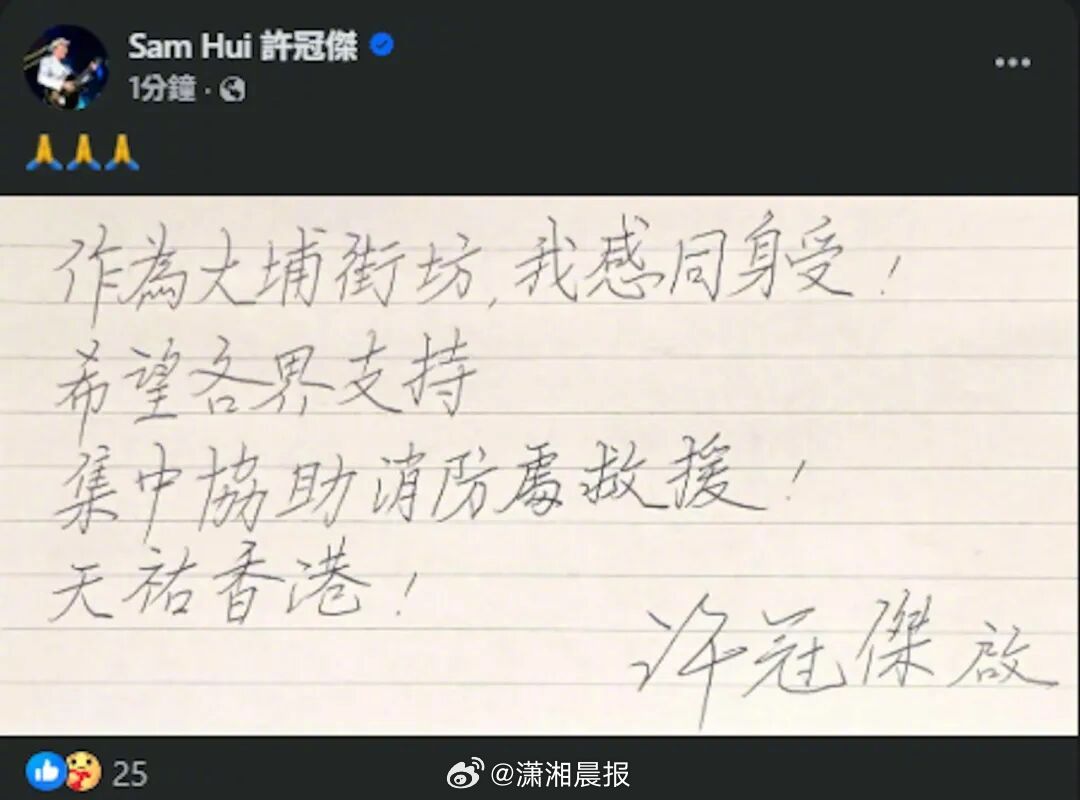 Sam Hui 許冠傑
1分鐘 ·
作為大埔街坊,我感同身受!
希望各界支持
集中協助消防處救援!
天祐香港!
许冠傑 啟
25
@潇湘晨报